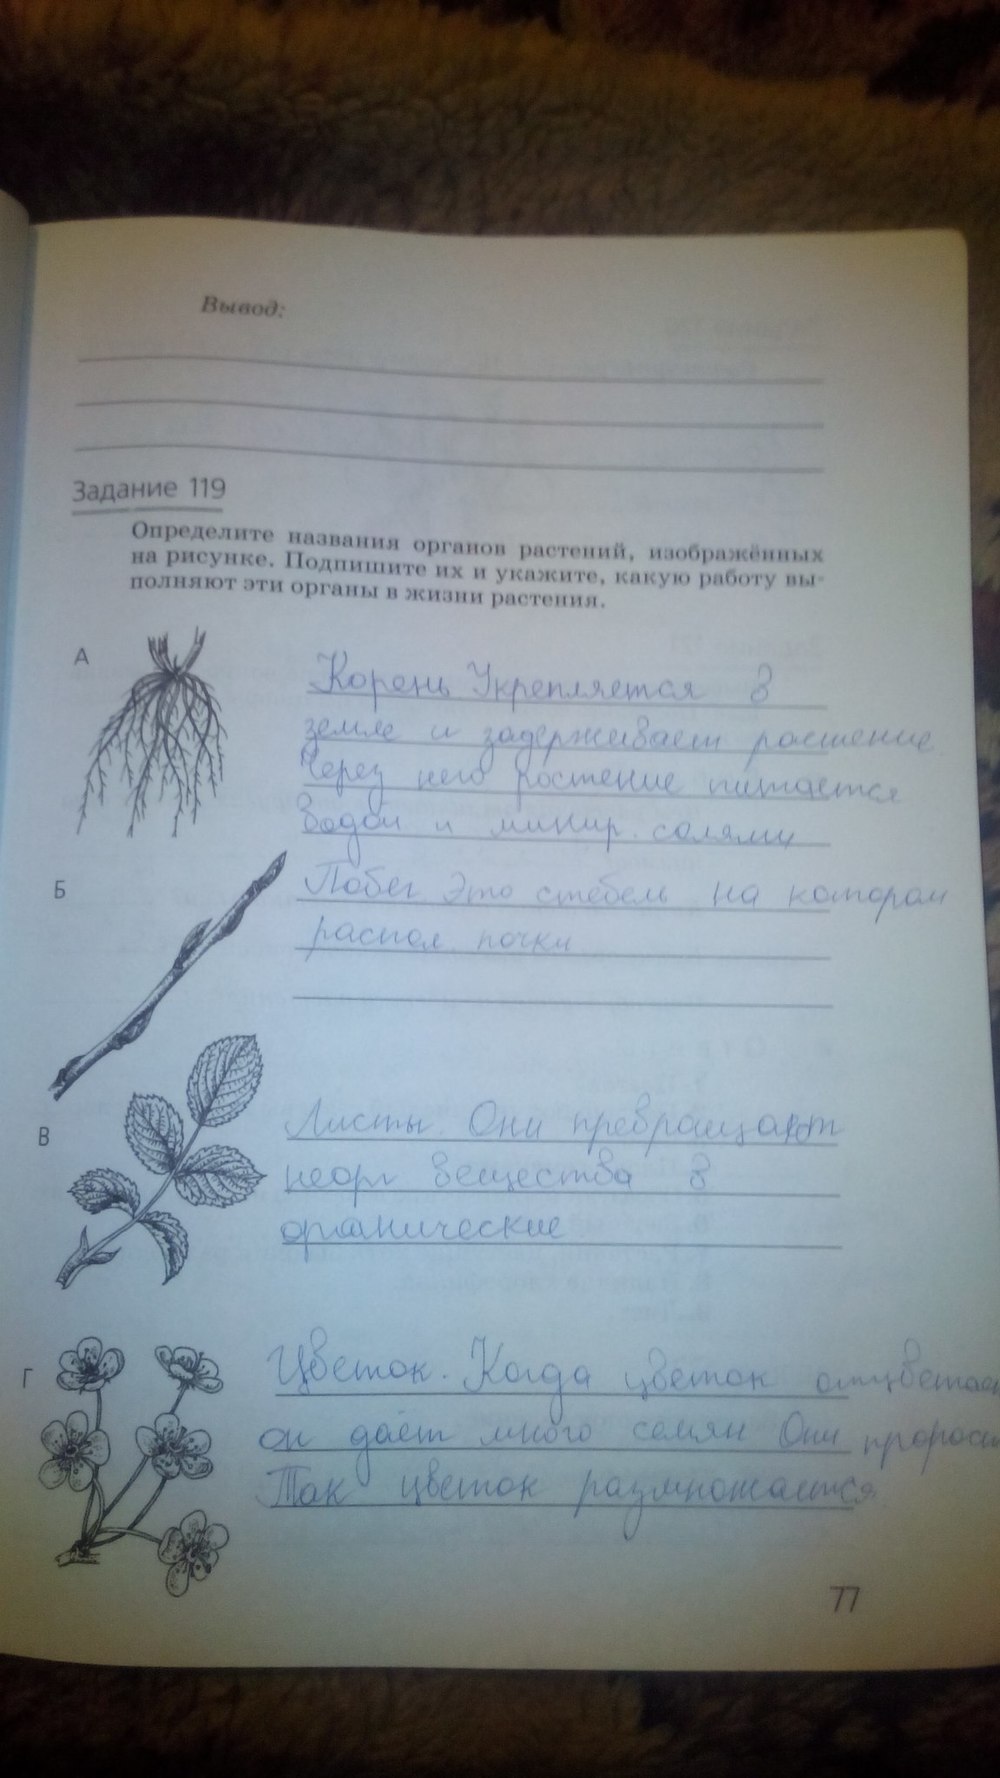 Вывод:
Задание 119
Определите названия органов растений, изображённых
на рисунке. Подпишите их и укажите, какую работу вы-
полняют эти органы в жизни растения.
А
Корень Укрепляется в
земле и задерживает растение
Через него ростение питается
водой и минир. солями
Б
Побег Это стебель на котором
распол почки
В
Листы. Они превращают
неорг вещества в
органические
Г
Цветок. Когда цветок отцветае
он даёт много семян Они пророст
Так цветок размножается
77